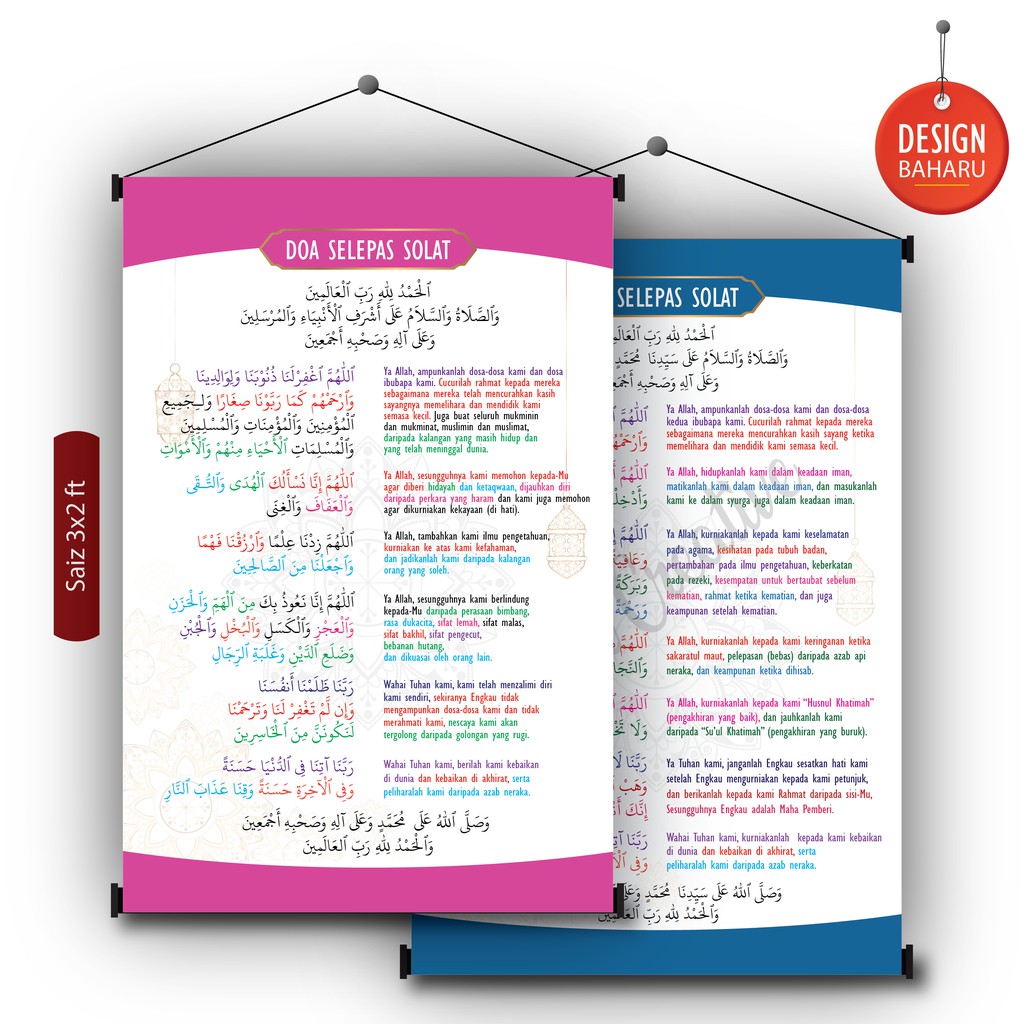 DESIGN
BAHARU
Saiz 3x2 ft
DOA SELEPAS SOLAT
اَلْحَمْدُ لِلّٰهِ رَبِّ الْعَالَمِينَ
وَالصَّلَاةُ وَالسَّلَامُ عَلَى أَشْرَفِ الْأَنْبِيَاءِ وَالْمُرْسَلِينَ
وَعَلَى آلِهِ وَصَحْبِهِ أَجْمَعِينَ
اَللّٰهُمَّ اغْفِرْلَنَا ذُنُوْبَنَا وَلِوَالِدِينَا
وَارْحَمْهُمْ كَمَا رَبَّوْنَا صِغَارًا وَلِجَمِيعِ
الْمُؤْمِنِينَ وَالْمُؤْمِنَاتِ وَالْمُسْلِمِينَ
وَالْمُسْلِمَاتِ الْأَحْيَاءِ مِنْهُمْ وَالْأَمْوَاتِ
Ya Allah, ampunkanlah dosa-dosa kami dan dosa
ibubapa kami. Cucurilah rahmat kepada mereka
sebagaimana mereka telah mencurahkan kasih
sayangnya memelihara dan mendidik kami
semasa kecil. Juga buat seluruh mukminin
dan mukminat, muslimin dan muslimat,
daripada kalangan yang masih hidup dan
yang telah meninggal dunia.
اَللّٰهُمَّ إِنَّا نَسْأَلُكَ الْهُدَى وَالتُّقَى
وَالْعَفَافَ وَالْغِنَى
Ya Allah, sesungguhnya kami memohon kepada-Mu
agar diberi hidayah dan ketaqwaan, dijauhkan diri
daripada perkara yang haram dan kami juga memohon
agar dikurniakan kekayaan (di hati).
اَللّٰهُمَّ زِدْنَا عِلْمًا وَارْزُقْنَا فَهْمًا
وَاجْعَلْنَا مِنَ الصَّالِحِينَ
Ya Allah, tambahkan kami ilmu pengetahuan,
kurniakan ke atas kami kefahaman,
dan jadikanlah kami daripada kalangan
orang yang soleh.
اَللّٰهُمَّ إِنَّا نَعُوذُ بِكَ مِنَ الْهَمِّ وَالْحَزَنِ
وَالْعَجْزِ وَالْكَسَلِ وَالْبُخْلِ وَالْجُبْنِ
وَضَلَعِ الدَّيْنِ وَغَلَبَةِ الرِّجَالِ
Ya Allah, sesungguhnya kami berlindung
kepada-Mu daripada perasaan bimbang,
rasa dukacita, sifat lemah, sifat malas,
sifat bakhil, sifat pengecut,
bebanan hutang,
dan dikuasai oleh orang lain.
رَبَّنَا ظَلَمْنَا أَنْفُسَنَا
وَإِن لَّمْ تَغْفِرْ لَنَا وَتَرْحَمْنَا
لَنَكُونَنَّ مِنَ الْخَاسِرِينَ
Wahai Tuhan kami, kami telah menzalimi diri
kami sendiri, sekiranya Engkau tidak
mengampunkan dosa-dosa kami dan tidak
merahmati kami, nescaya kami akan
tergolong daripada golongan yang rugi.
رَبَّنَا آتِنَا فِي الدُّنْيَا حَسَنَةً
وَفِي الْآخِرَةِ حَسَنَةً وَقِنَا عَذَابَ النَّارِ
Wahai Tuhan kami, berilah kami kebaikan
di dunia dan kebaikan di akhirat, serta
peliharalah kami daripada azab neraka.
وَصَلَّى اللّٰهُ عَلَى مُحَمَّدٍ وَعَلَى آلِهِ وَصَحْبِهِ أَجْمَعِينَ
وَالْحَمْدُ لِلّٰهِ رَبِّ الْعَالَمِينَ
SELEPAS SOLAT
وَالصَّلَاةُ وَالسَّلَامُ عَلَى سَيِّدِنَا
وَعَلَى آلِهِ وَصَحْبِهِ
Ya Allah, ampunkanlah dosa-dosa kami dan dosa-dosa
kedua ibubapa kami. Cucurilah rahmat kepada mereka
sebagaimana mereka mencurahkan kasih sayang ketika
memelihara dan mendidik kami semasa kecil.
Ya Allah, hidupkanlah kami dalam keadaan iman,
matikanlah kami dalam keadaan iman, dan masukanlah
kami ke dalam syurga juga dalam keadaan iman.
Ya Allah, kurniakanlah kepada kami keselamatan
pada agama, kesihatan pada tubuh badan,
pertambahan pada ilmu pengetahuan, keberkatan
pada rezeki, kesempatan untuk bertaubat sebelum
kematian, rahmat ketika kematian, dan juga
keampunan setelah kematian.
Ya Allah, kurniakanlah kepada kami keringanan ketika
sakaratul maut, pelepasan (bebas) daripada azab api
neraka, dan keampunan ketika dihisab.
Ya Allah, kurniakanlah kepada kami “Husnul Khatimah”
(pengakhiran yang baik), dan jauhkanlah kami
daripada “Su'ul Khatimah” (pengakhiran yang buruk).
Ya Tuhan kami, janganlah Engkau sesatkan hati kami
setelah Engkau mengurniakan kepada kami petunjuk,
dan berikanlah kepada kami Rahmat daripada sisi-Mu,
Sesungguhnya Engkau adalah Maha Pemberi.
Wahai Tuhan kami, kurniakanlah kepada kami kebaikan
di dunia dan kebaikan di akhirat, serta
peliharalah kami daripada azab neraka.
وَصَلَّى اللّٰهُ عَلَى سَيِّدِنَا مُحَمَّدٍ
وَالْحَمْدُ لِلّٰهِ رَبِّ